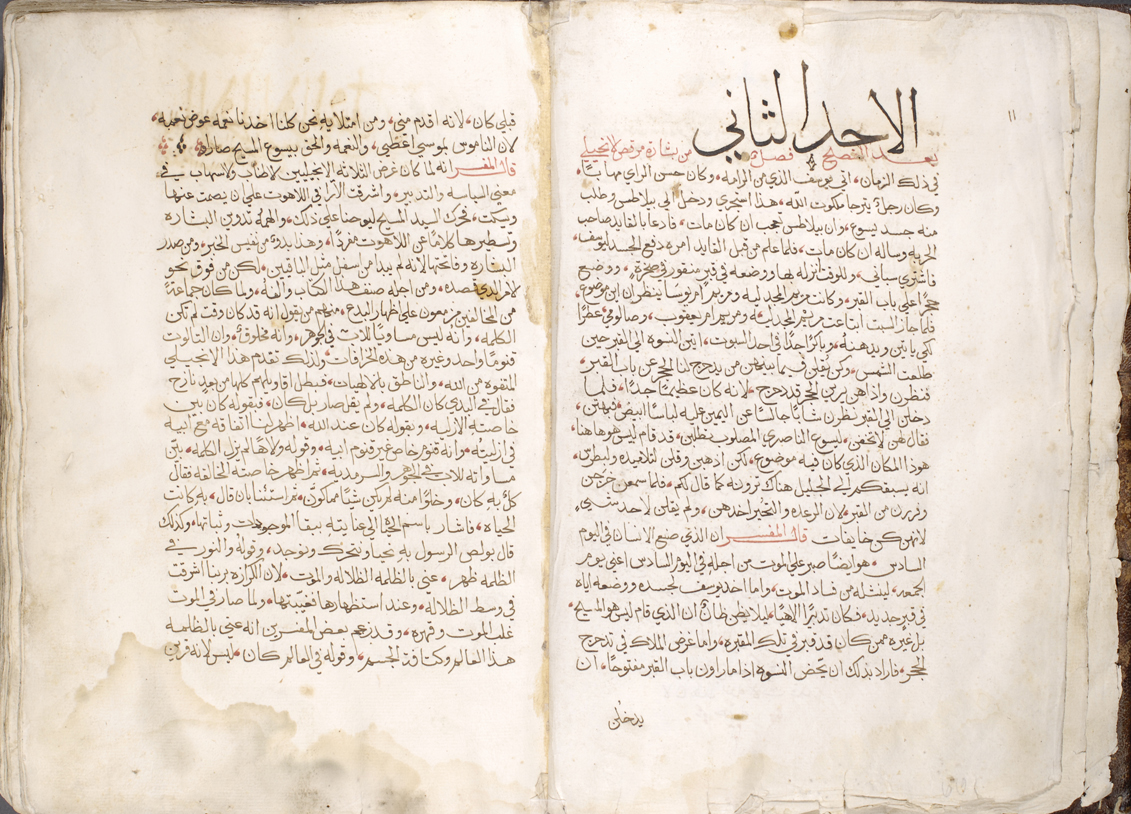 ١١
الاحد الثاني
بعد الفصح فصل من بشارة مرقص الانجيلي
في ذلك الزمان، اتى يوسف الذي من الرامه، وكان حسن الراي مهابًا،
وكان رجلًا يترجا ملكوت الله، هذا استجرى ودخل الى بيلاطس وطلب
منه جسد يسوع، وان بيلاطس تعجب ان كان مات، فدعا بالقايد صاحب
الحربه وساله ان كان مات، فلما علم من قبل القايد امره بدفع الجسد ليوسف،
فاشترى سباني، وللوقت انزله بها ووضعه في قبر منقور في صخرة، ووضع
حجرًا على باب القبر، وكانت مريم المجدليه ومريم ام يوسا ينظران اين موضوع،
فلما جاز السبت ابتاعت مريم المجدليه ومريم ام يعقوب، وصالومي عطرًا
لكي ياتين ويدهنه، وباكرًا جدًا في احد السبوت، اتين النسوه الى القبر حين
طلعت الشمس، وكن يقلن فيما بينهن من يدحرج لنا الحجر عن باب القبر،
فنظرن واذا هن يرين الحجر قد دحرج، لانه كان عظيمًا جدًا، فلما
دخلن الى القبر نظرن شابًا جالسًا عن اليمين عليه لباسًا ابيض، فبهتن،
فقال لهن لا تخفن، ليسوع الناصري المصلوب تطلبن، قد قام ليس هو هاهنا،
هوذا المكان الذي كان فيه موضوع، لكن اذهبن وقلن لتلاميذه ولبطرس
انه يسبقكم الى الجليل هناك ترونه كما قال لكم، فلما سمعن خرجن
وفررن من القبر، لان الرعده والتحير اخدهن، ولم يقلن لاحد شيء
لانهن كن خايفات قال المفسر ان الذي صنع الانسان في اليوم
السادس، هو ايضًا صبر على الموت من اجله في اليوم السادس اعني يوم
الجمعه، لينشله من فساد الموت، واما اخد يوسف لجسده ووضعه اياه
في قبر جديد، فكان تدبيرًا الاهيًا، ليلا يظن ظانٌ ان الذي قام ليس هو المسيح،
بل غيره ممن كان قد قبر في تلك المقبرة، واما غرض الملاك في تدحرج
الحجر، فاراد بذلك ان يحض النسوه اذا ما راون باب القبر مفتوحًا، ان
يدخلن
قبلي كان، لانه اقدم مني، ومن امتلايه نحن كلنا اخدنا نعمه عوض نعمه،
لان الناموس لموسى اعطي، والنعمه والحق بيسوع المسيح صارا،
قال المفسر انه لما كان غرض الثلاثه الانجيليين الاطناب والاسهاب في
معنى السياسه والتدبير، واشرقت الارا في اللاهوت على ان يصمت عنها
ويسكت، تحرك السيد المسيح ليوحنا على ذلك، والهمه تدوين البشاره
وتسطيرها كلامًا عن اللاهوت مفردًا، وهذا بدوه من نفيس الخبر، ومن صدر
البشاره وفاتحتها لانه لم يبدا من اسفل مثل الباقين، لكن من فوق نحو
الامر الذي قصده، ومن اجله صنف هذا الكتاب والفه، ولما كان جماعةً
من المخالفين مزمعون على اظهار البدع، منهم من يقول انه قد كان وقت لم تكن
الكلمه، وانه ليس مساويًا للاب في الجوهر، وانه مخلوقٌ، وان الثالوت
قنومًا واحد وغيره من هذه الخرافات، ولذلك تقدم هذا الانجيلي
المتفوه من الله، والناطق بالالهيات، فبطل اقاويلهم كلها من بعيد نازح
فقال في البدي كان الكلمه، ولم يقل صار بل كان، فبقوله كان بين
خاصته الازليه، وبقوله كان عند الله، اظهر لنا اتفاقه مع ابيه
في ازليته، وانه قنوم خاص غير قنوم ابيه، وقوله والاهًا لم يزل الكلمه، بيّن
مساواته للاب في الجوهر والسرمديه، ثم اظهر خاصته الخالقه فقال
كلٌ به كان، وخلوًا منه لم يكن شيًا مما كوّن، ثم استثنا بان قال، به كانت
الحياه، فاشار باسم الحياه الى عنايته ببقا الموجودات وثباتها، وكذلك
قال بولص الرسول به نحيا ونتحرك ونوجد، وقوله والنور في
الظلمه ظهر، عنى بالظلمه الضلاله والموت، لان الكرازه بربنا اشرقت
في وسط الظلاله، وعند استظهارها فغيّبتها، ولما صار في الموت
غلب الموت وقهره، وقد زعم بعض المفسرين انه عنى بالظلمه
هذا العالم وكثافة الجسم، وقوله في العالم كان، ليس لانه قرين